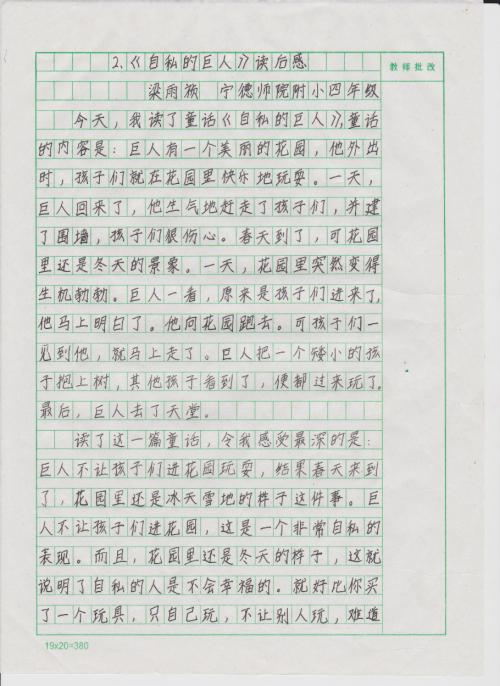 2.《自私的巨人》读后感
教师批改
梁雨 宁德师院附小四年级
今天，我读了童话《自私的巨人》，童话
的内容是：巨人有一个美丽的花园，他外出
时，孩子们就在花园里快乐地玩耍。一天，
巨人回来了，他生气地赶走了孩子们，并建
了围墙，孩子们很伤心。春天到了，可花园
里还是冬天的景象。一天，花园里突然变得
生机勃勃。巨人一看，原来是孩子们进来了，
他马上明白了。他向花园跑去。可孩子们一
见到他，就马上走了。巨人把一个矮小的孩
子抱上树，其他孩子看到了，便都过来玩了。
最后，巨人去了天堂。
读了这一篇童话，令我感受最深的是：
巨人不让孩子们进花园玩耍，结果春天来到
了，花园里还是冰天雪地的样子这件事。巨
人不让孩子们进花园，这是一个非常自私的
表现。而且，花园里还是冬天的样子，这就
说明了自私的人是不会幸福的。就好比你买
了一个玩具，只自己玩，不让别人玩，难道
19x20=380